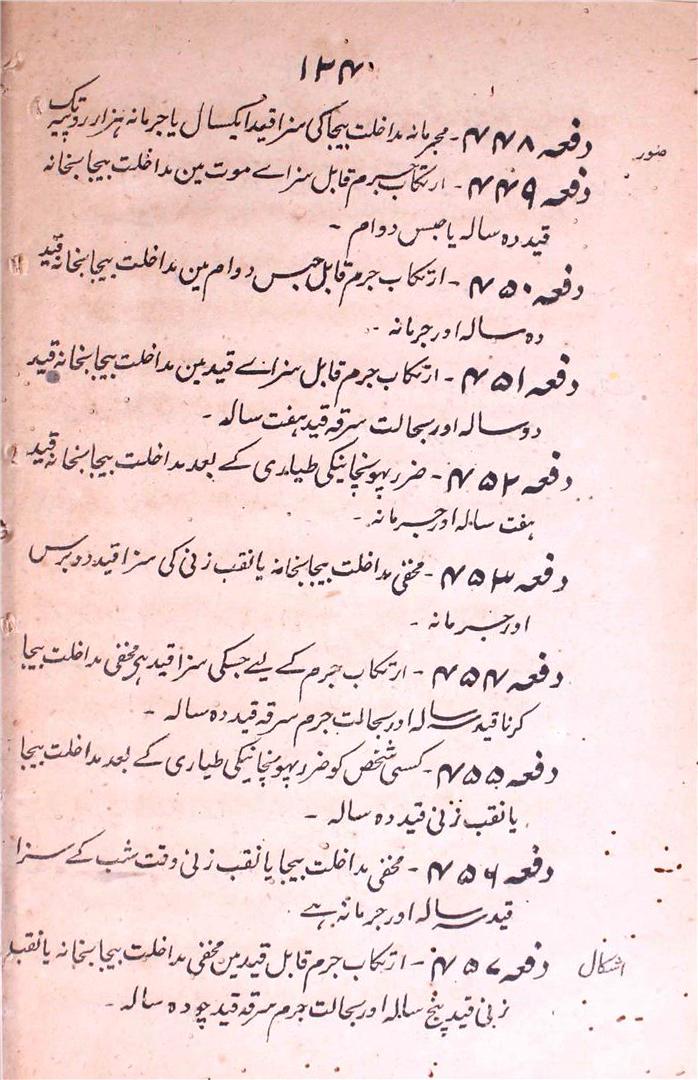 ۱۲۴
دفعہ ۴۴۸ - مجرمانہ مداخلت بیجا کی سزا قید ایکسال یا جرمانہ ہزار روپیہ تک
دفعہ ۴۴۹ - ارتکاب جرم قابل سزاے موت مین مداخلت بیجا بخانہ
قید دہ سالہ یا حبس دوام -
دفعہ ۴۵۰ - ارتکاب جرم قابل حبس دوام مین مداخلت بیجا بخانہ قید
دہ سالہ اور جرمانہ -
دفعہ ۴۵۱ - ارتکاب جرم قابل سزاے قید مین مداخلت بیجا بخانہ قید
دو سالہ اور بحالت سرقہ قید ہفت سالہ -
دفعہ ۴۵۲ - ضرر پہونچانیکی طیاری کے بعد مداخلت بیجا بخانہ قید
ہفت سالہ اور جرمانہ -
دفعہ ۴۵۳ - مخفی مداخلت بیجا بخانہ یا نقب زنی کی سزا قید دو برس
اور جرمانہ -
دفعہ ۴۵۴ - ارتکاب جرم کے لیے جسکی سزا قید ہی مخفی مداخلت بیجا
کرنا قید سہ سالہ اور بحالت جرم سرقہ قید دہ سالہ -
دفعہ ۴۵۵ - کسی شخص کو ضرر پہونچانیکی طیاری کے بعد مداخلت بیجا
یا نقب زنی قید دہ سالہ -
دفعہ ۴۵۶ - مخفی مداخلت بیجا یا نقب زنی وقت شب کے سزا
قید سہ سالہ اور جرمانہ ہے
دفعہ ۴۵۷ - ارتکاب جرم قابل قید مین مخفی مداخلت بیجا بخانہ یا نقب
زنی قید پنج سالہ اور بحالت جرم سرقہ قید چودہ سالہ -